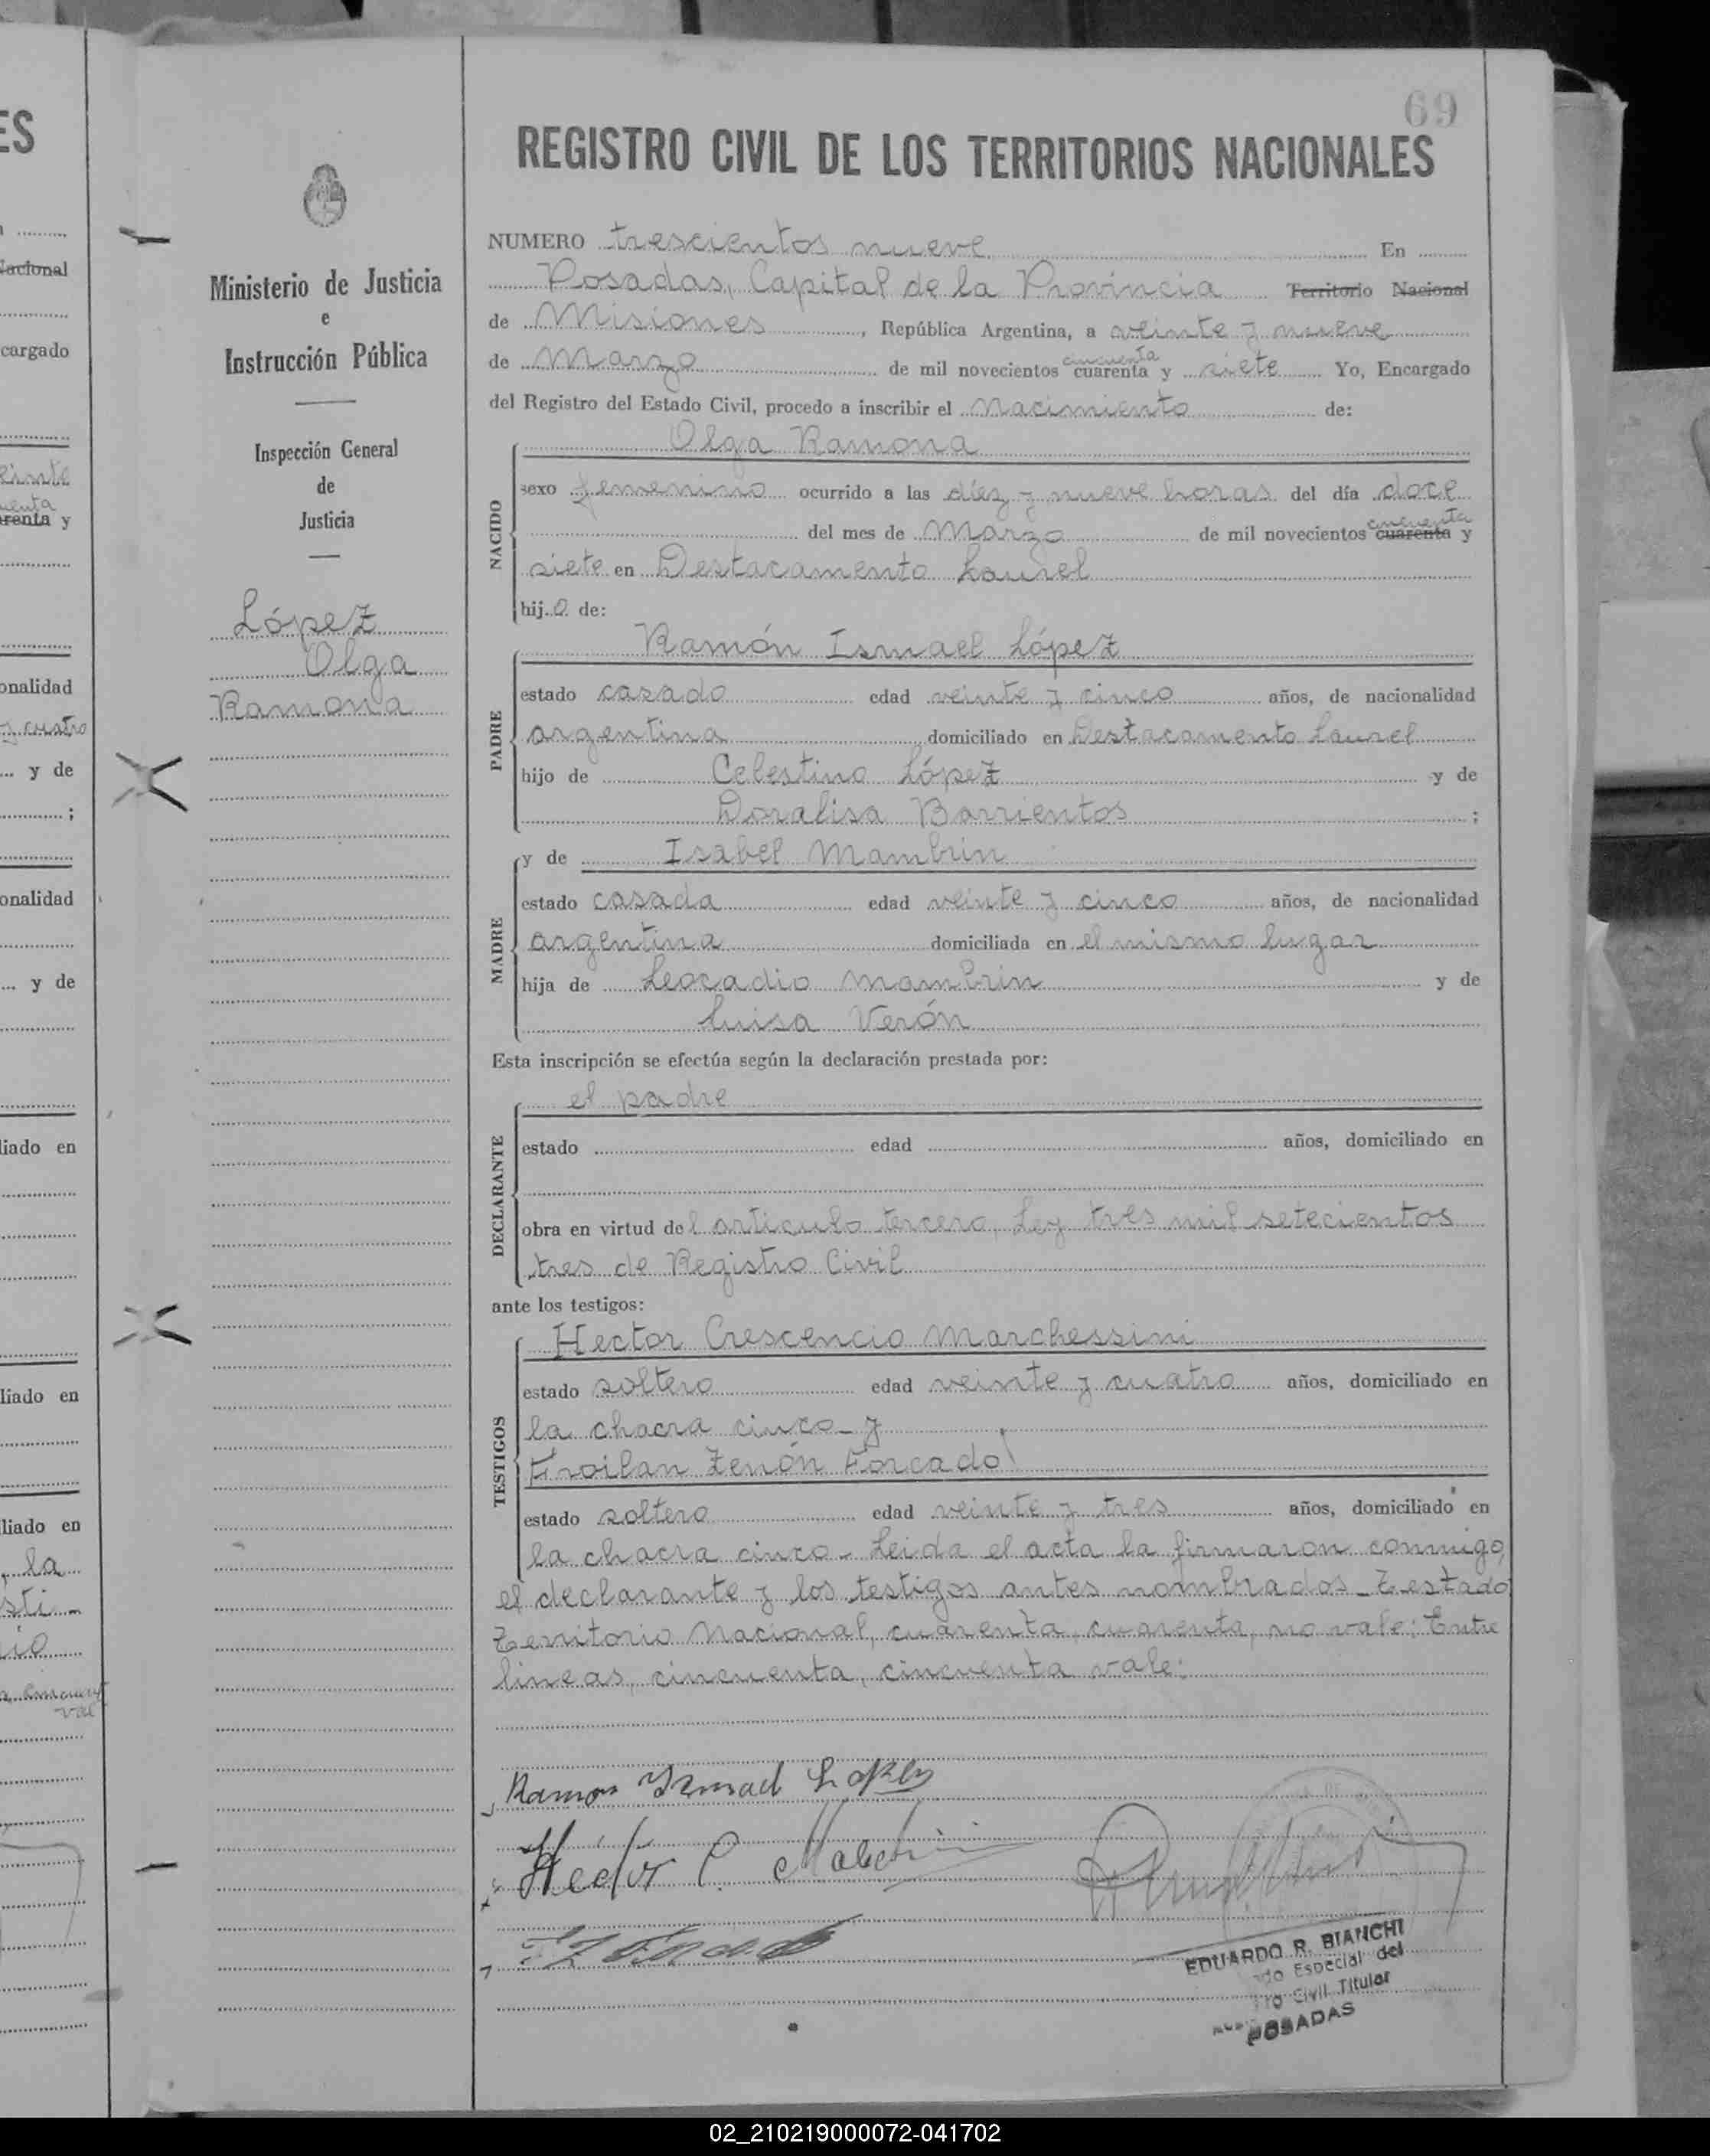 69
REGISTRO CIVIL DE LOS TERRITORIOS NACIONALES
Ministerio de Justicia
e
Instrucción Pública
Inspección General
de
Justicia
López
Olga
Ramona
NUMERO trescientos nueve En
Posadas, Capital de la Provincia Territorio Nacional
de Misiones, República Argentina, a veinte y nueve
de Marzo de mil novecientos cuarenta cincuenta y siete Yo, Encargado
del Registro del Estado Civil, procedo a inscribir el Nacimiento de:
NACIDO
Olga Ramona
sexo femenino ocurrido a las diez y nueve horas del día doce
del mes de Marzo de mil novecientos cuarenta cincuenta y
siete en Destacamento Laurel
hij.a de:
PADRE
Ramón Ismael López
estado casado edad veinte y cinco años, de nacionalidad
argentina domiciliado en Destacamento Laurel
hijo de Celestino López y de
Doralisa Barrientos ;
MADRE
y de Isabel Mambrin
estado casada edad veinte y cinco años, de nacionalidad
argentina domiciliada en el mismo lugar
hija de Leocadio Mambrin y de
Luisa Verón
Esta inscripción se efectúa según la declaración prestada por:
DECLARANTE
el padre
estado edad años, domiciliado en
obra en virtud del articulo tercero, Ley tres mil setecientos
tres de Registro Civil
ante los testigos:
TESTIGOS
Hector Crescencio Marchessini
estado soltero edad veinte y cuatro años, domiciliado en
la chacra cinco - y
Froilan Zenón Forcado
estado soltero edad veinte y tres años, domiciliado en
la chacra cinco - Leida el acta la firmaron conmigo,
el declarante y los testigos antes nombrados - Testado
Territorio Nacional, cuarenta, cuarenta, no vale: Entre
lineas, cincuenta, cincuenta vale:
Ramon Ismael Lopez
Héctor C.
EDUARDO R. BIANCHI
Especial del
Civil Titular
POSADAS
ES
Nacional
cargado
einte
renta y
onalidad
y cuatro
y de
;
onalidad
y de
liado en
liado en
liado en
, la
sti -
02_210219000072-041702